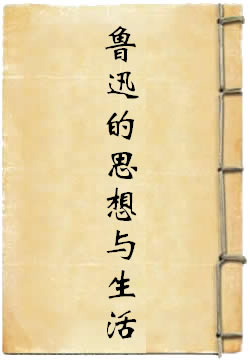 鲁迅的思想与生活